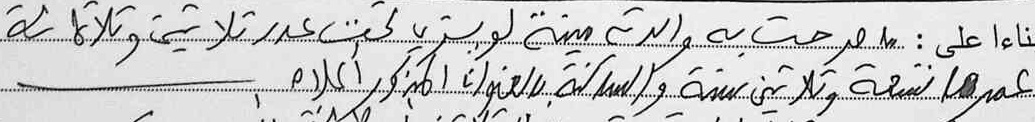 بناءا على : ما صرحت به والدته مينة لوبتريا تحت عدد ثلاثين وثلاثمائة
عمرها تسعة وثلاثين سنة والساكنة بالعنوان المذكور أعلاه